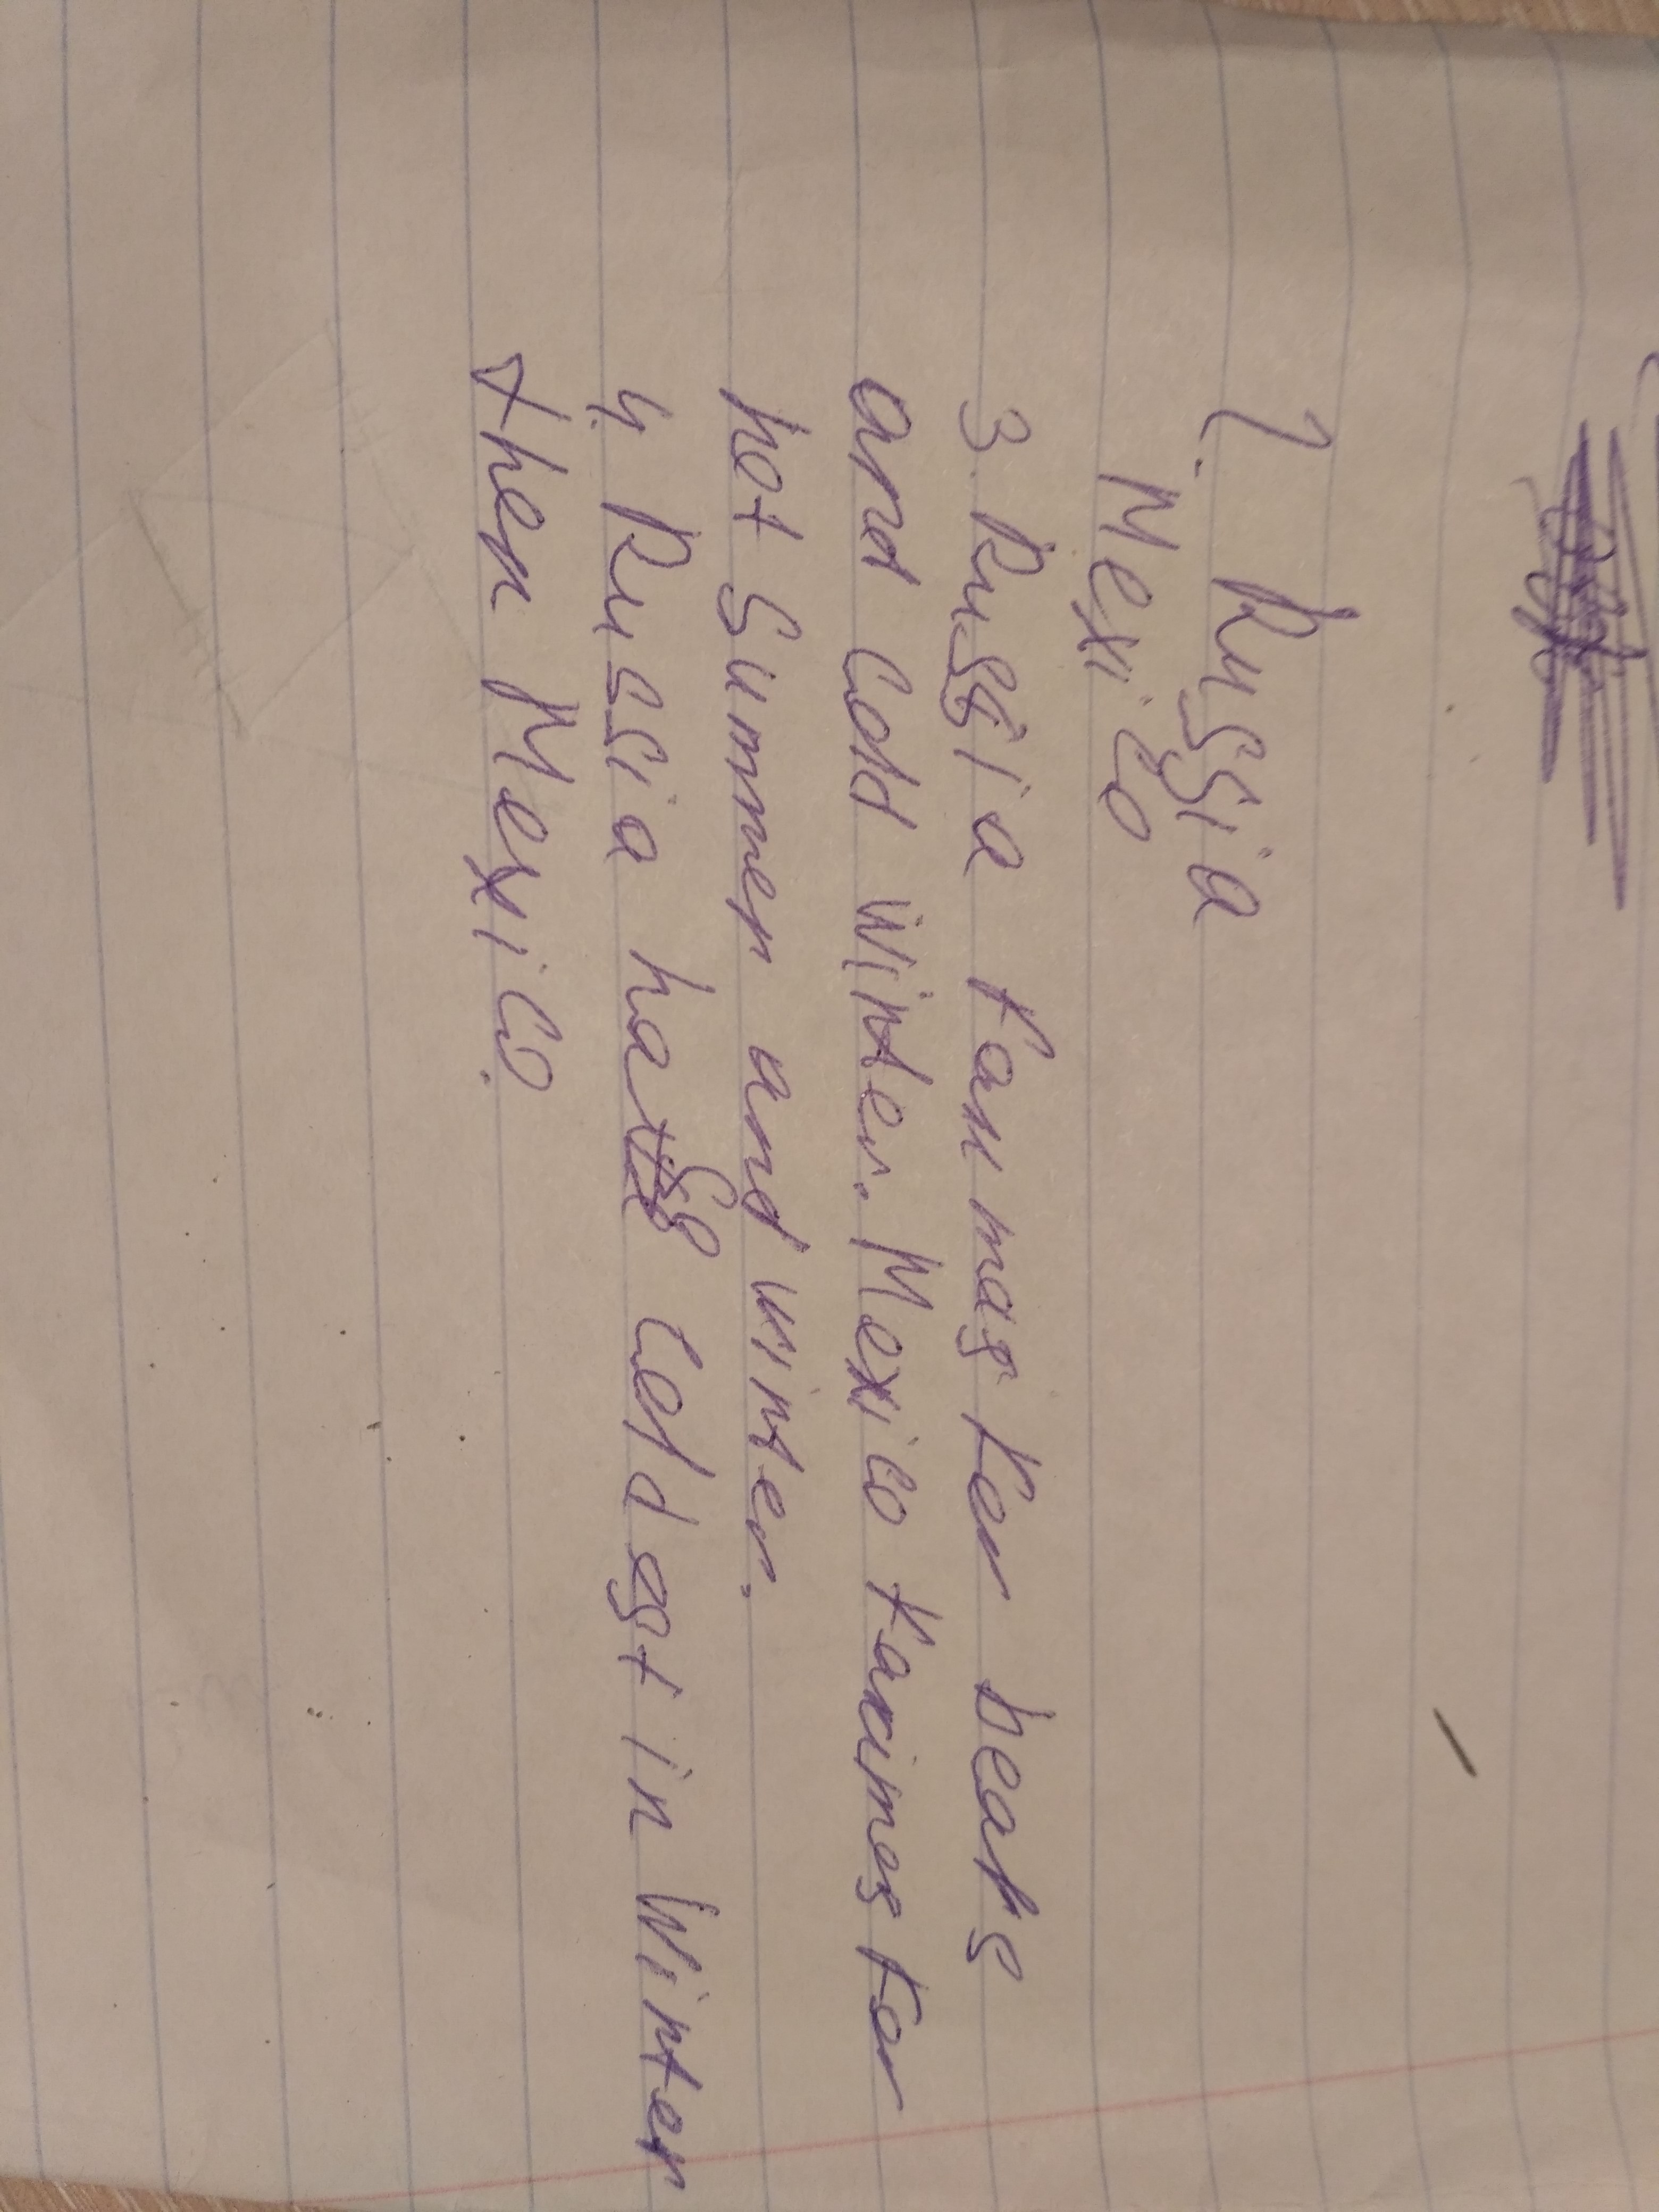 1. Russia
Mexico
3. Russia fan mas for bears
and Cold winter. Mexico famines for
hot Summer and winter.
4. Russia ha Coldest in Winter
then Mexico.